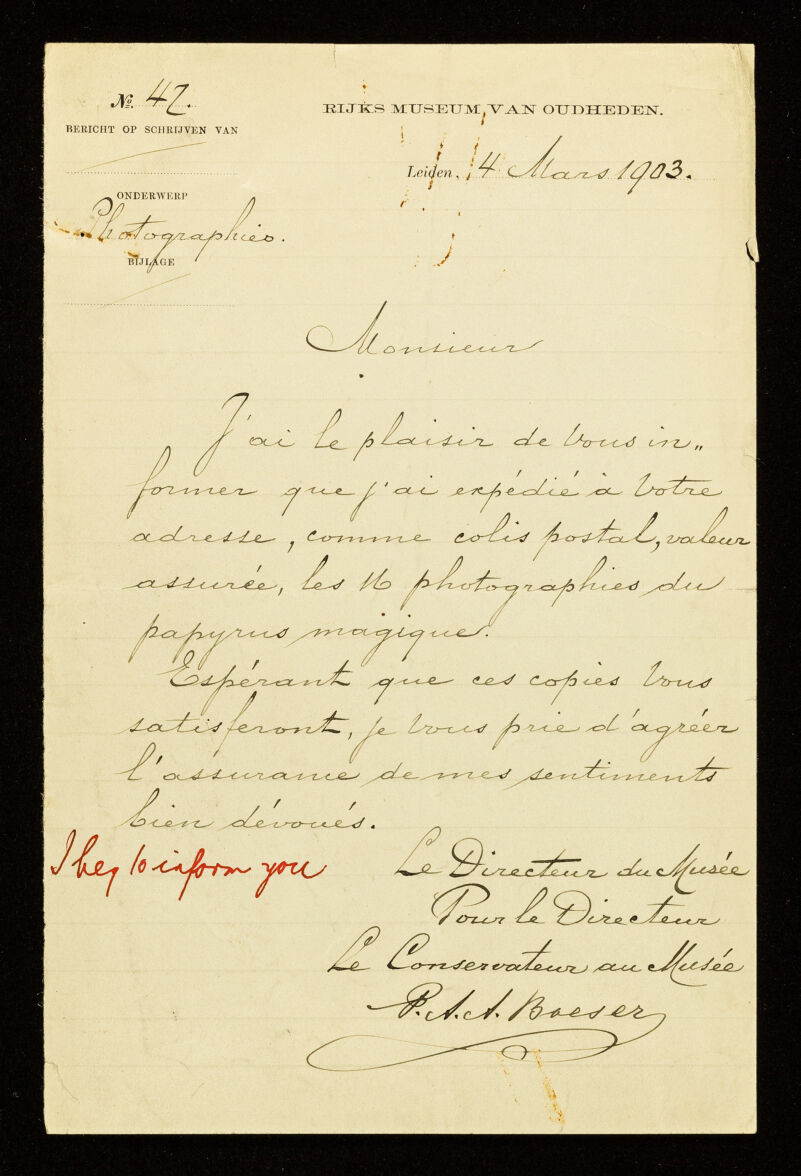 №. 42.
BERICHT OP SCHRIJVEN VAN
ONDERWERP
Photographies.
BIJLAGE
RIJKS MUSEUM VAN OUDHEDEN.
Leiden, 4 Mars 1903.
Monsieur
J'ai le plaisir de Vous in„
former que j'ai expédié à Votre
adresse, comme colis postal, valeur
assurée, les 16 photographies du
papyrus magique.
Espérant que ces copies Vous
satisferont, je Vous prie d'agréer
l'assurance de mes sentiments
bien dévoués.
I beg to inform you
Le Directeur du Musée
Pour le Directeur
Le Conservateur au Musée
P.A.A. Boeser